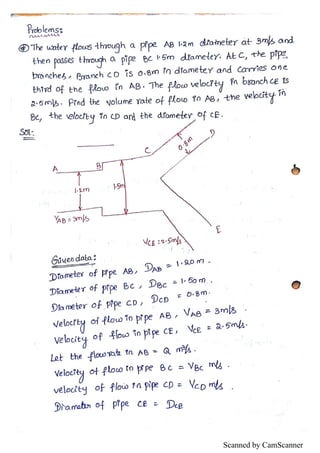 Problems:
④ The water flows through a pipe AB 1.2m diameter at 3m/s and
then passes through a pipe BC 1.5m diameter. At C, the pipe
branches, Branch CD is 0.8m in diameter and carries one
third of the flow in AB. The flow velocity in branch CE is
2.5m/s. Find the volume rate of flow in AB, the velocity in
BC, the velocity in CD and the diameter of CE.
Sol:-
C
D
0.8m
A
B
1.2m
1.5m
VAB = 3m/s
VCE = 2.5m/s
E
Given data:
Diameter of pipe AB, DAB = 1.20m.
Diameter of pipe BC, DBC = 1.50m.
Diameter of pipe CD, DCD = 0.8m.
Velocity of flow in pipe AB, VAB = 3m/s.
Velocity of flow in pipe CE, VCE = 2.5m/s.
Let the flow rate in AB = Q m³/s.
Velocity of flow in pipe BC = VBC m/s.
velocity of flow in pipe CD = VCD m/s.
Diameter of pipe CE = DCE
Scanned by CamScanner